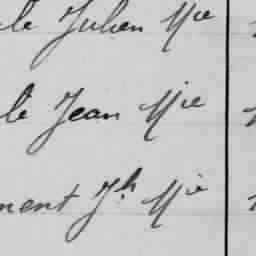 le Julien M^ie
le Jean M^ie
ment J.h M^ie